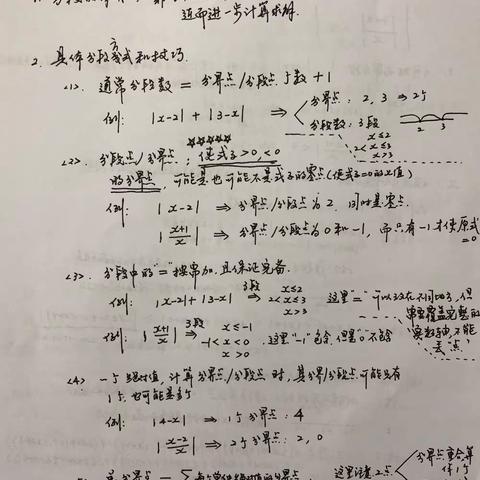 进而进一步计算求解.
2. 具体分段方式和技巧.
<1>. 通常分段数 = 分界点/分段点个数 + 1
例: |x-2| + |3-x| ⇒ 分界点: 2, 3 ⇒ 2个
分段数: 3段
x≤2
2<x≤3
x>3
2 3
<2>. 分段点/分界点: 使式子>0, <0
的分界点, 可能是也可能不是式子的零点(使式子=0的x值)
例: |x-2| ⇒ 分界点/分段点为2, 同时是零点.
|x+1/x| ⇒ 分界点/分段点为0和-1, 而只有-1才使原式=0
<3>. 分段中的"="按需加, 且保证完备.
例: |x-2| + |3-x| 3段⇒ x≤2
2<x≤3
x>3
这里"="可以放在不同地方, 但需要覆盖完整的实数轴, 不能丢"点"
例: |x+1/x| 3段⇒ x≤-1
-1<x<0
x>0
这里"-1"包含, 但是"0"不含
<4>. 一个绝对值, 计算分界点/分段点时, 其分界/分段点可能只有
1个, 也可能是多个
例: |4-x| ⇒ 1个分界点: 4
|x-2/x| ⇒ 2个分界点: 2, 0
这里注意2点
分界点重合算
1个